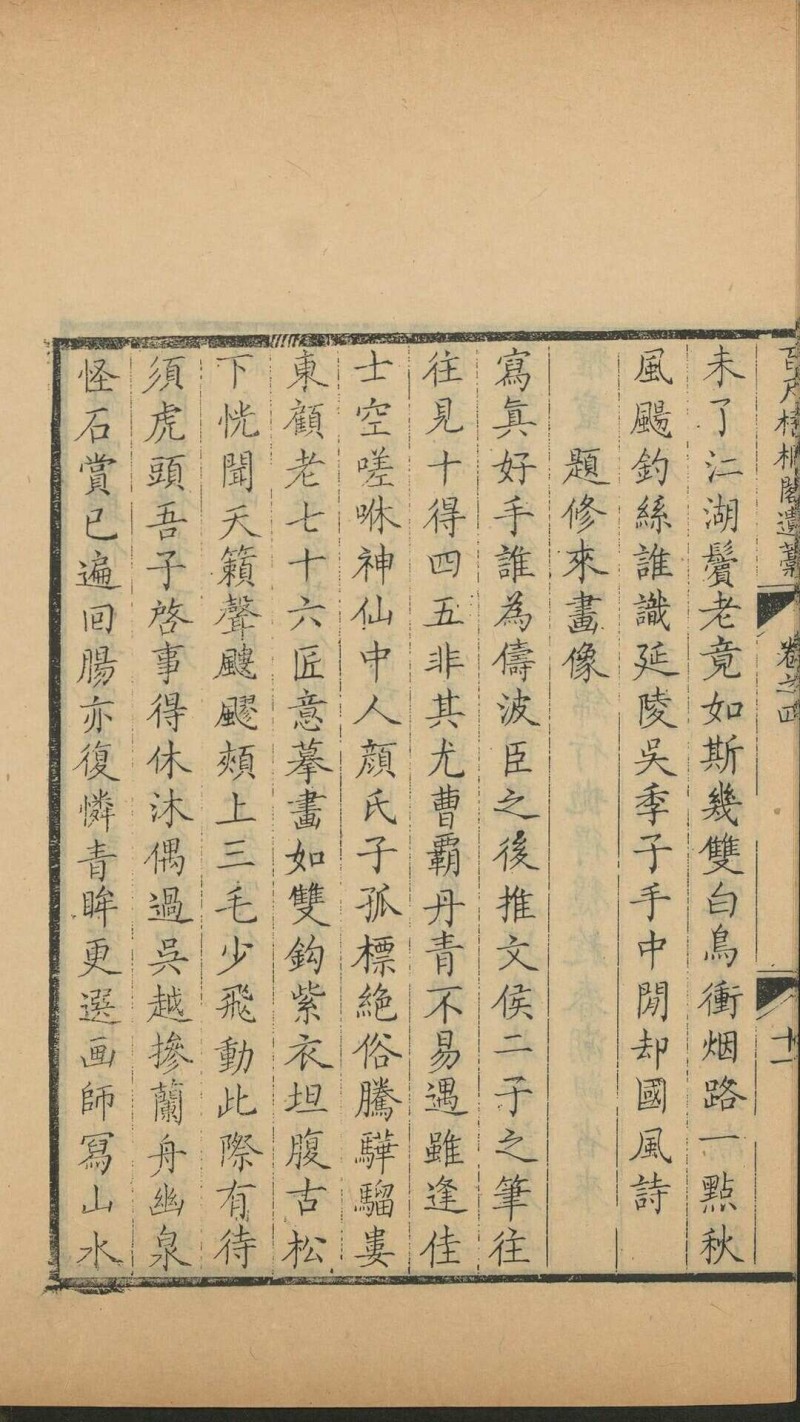 百尺梧桐閣遺藁 卷之四 十一
未了江湖鬢老竟如斯幾雙白鳥衝烟路一點秋
風颺釣絲誰識延陵吳季子手中閒却國風詩
題修來畫像
寫眞好手誰為儔波臣之後推文侯二子之筆往
往見十得四五非其尤曹霸丹青不易遇雖逢佳
士空嗟咻神仙中人顔氏子孤標絶俗騰驊騮婁
東顧老七十六匠意摹畫如雙鈎紫衣坦腹古松
下恍聞天籟聲颼飀頰上三毛少飛動此際有待
須虎頭吾子啓事得休沐偶過吳越摻蘭舟幽泉
怪石賞已遍回腸亦復憐青眸更選画師冩山水